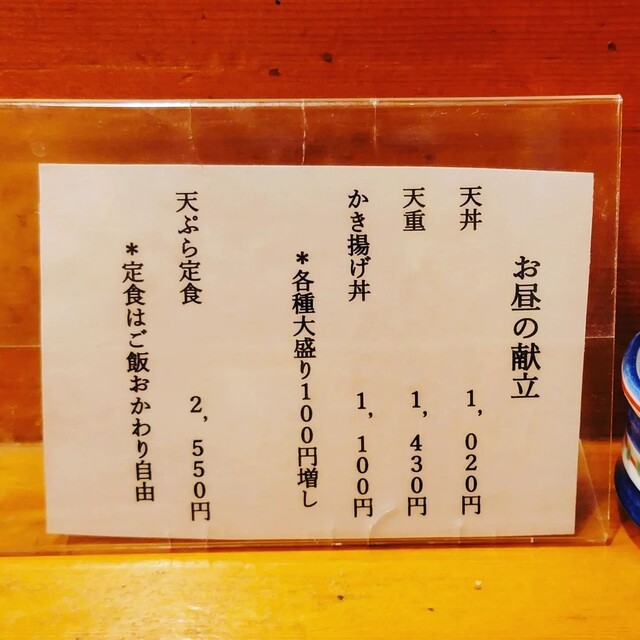 お昼の献立
天丼 1,020円
天重 1,430円
かき揚げ丼 1,100円
*各種大盛り100円増し
天ぷら定食 2,550円
*定食はご飯おかわり自由